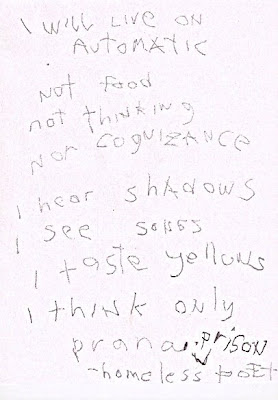 I WILL LIVE ON
AUTOMATIC
NOT FOOD
not thinking
NOR COGNIZANCE
I hear shadows
I see
I taste yellows
I think only
prana. prison
-homeless poet